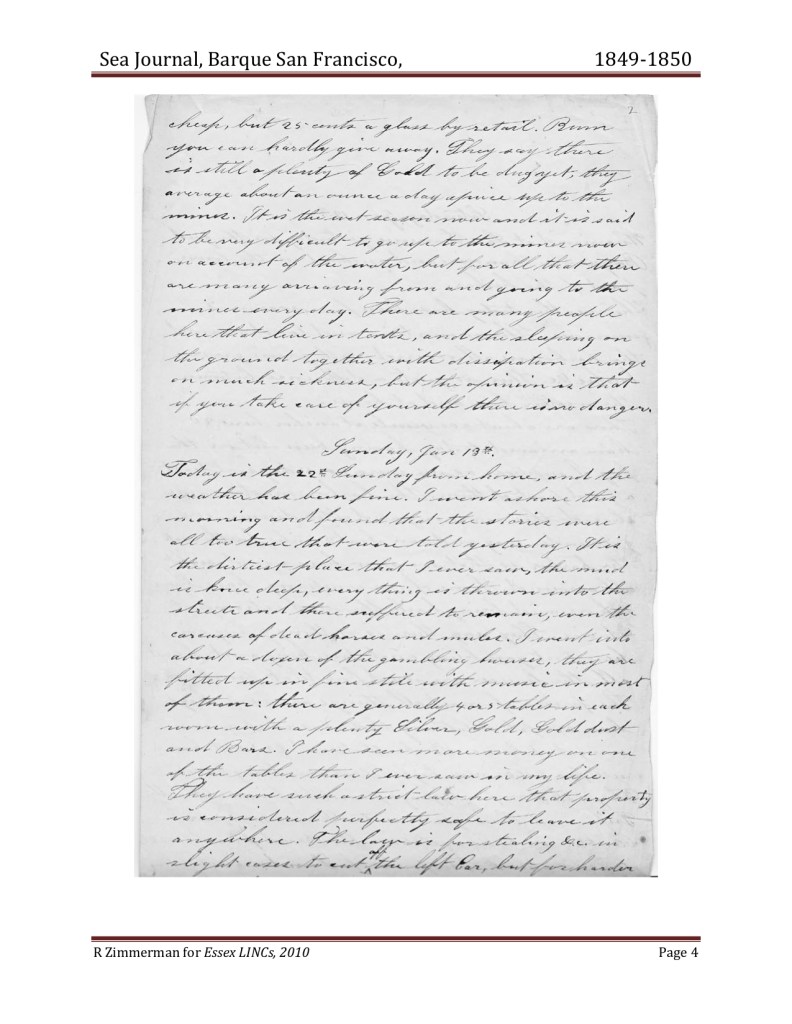 Sea Journal, Barque San Francisco, 1849-1850
2
cheap, but 25 cents a glass by retail. Rum
you can hardly give away. They say there
is still a plenty of Gold to be dug yet; they
average about an ounce a day apiece up to the
mines. It is the wet season now and it is said
to be very difficult to go up to the mines now
on account of the water, but for all that there
are many arriaving from and going to the
mines every day. There are many people
here that live in tents, and the sleeping on
the ground together with dissipation brings
on much sickness, but the opinion is that
if you take care of yourself there is no danger.
Sunday, Jan 13th.
Today is the 22d Sunday from home, and the
weather has been fine. I went ashore this
morning and found that the stories were
all too true that were told yesterday. It is
the dirtiest place that I ever saw, the mud
is knee deep, every thing is thrown into the
streets and there suffered to remain, even the
carcases of dead horses and mules. I went into
about a dozen of the gambling houses, they are
fitted up in fine stile with music in most
of them: there are generally 4 or 5 tables in each
room with a plenty Silver, Gold, Gold dust
and Bars. I have seen more money on one
of the tables than I ever saw in my life.
They have such a strict law here that property
is considered perfectly safe to leave it
anywhere. The law is for stealing &c. in
slight cases to cut off the left Ear, but for harder
R Zimmerman for Essex LINCs, 2010 Page 4